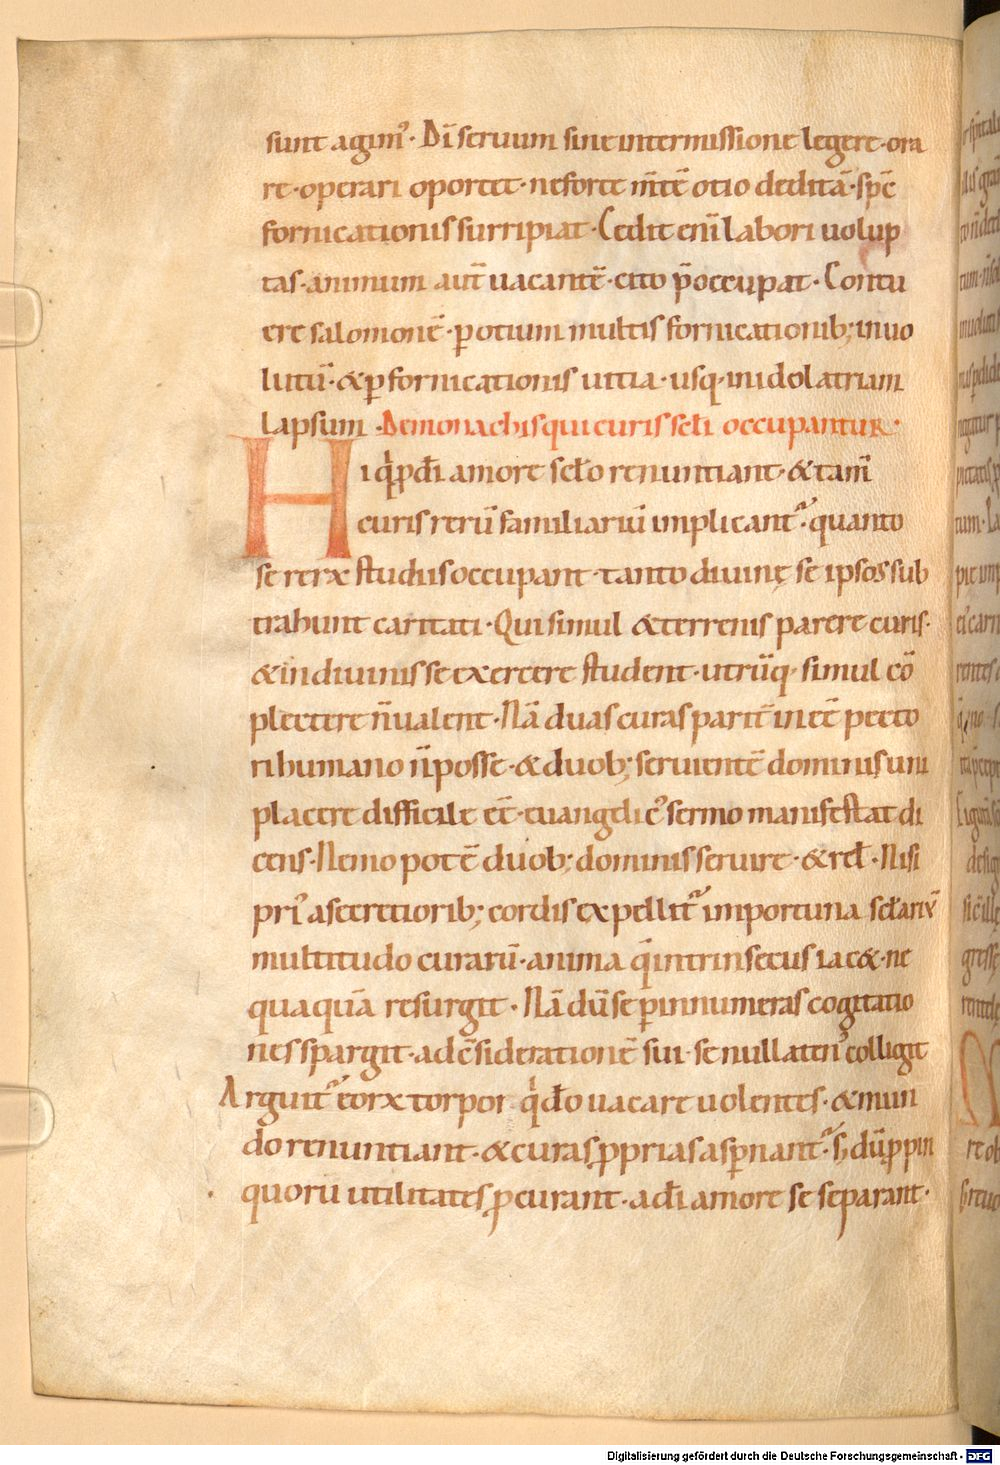 sunt agim᾿· Dī seruum sine intermissione legere· ora
re· operari oportet· neforte m̄tē otio deditā· sp̄c
fornicationis surripiat· Cedit enī labori uolup
tas· animum aut̄ uacantē· cito p̄occupat· Contu
ere salomonē· potium multis fornicationib; inuo
lutū· & ꝑ fornicationis uitia· usq· in idolatriam
lapsum· De monachis qui curis scłi occupantur·
Hi q̇ ꝓ dī amore scło renuntiant· & tam̄
curis rerū familiariū implicant᷒· quanto
se rerx studiis occupant· tanto diuinę se ipsos sub
trahunt caritati· Qui simul & terrenis parere curis·
& in diuinis se exercere student· utrūq· simul cō
plectere n̄ ualent· Nā duas curas parit̄ inēē pecto
ri humano n̄ posse· & duob; seruientē dominis uni
placere difficile eē· euangelic᾿ sermo manifestat di
cens· Nemo potē duob; dominis seruire· & reł· Nisi
pri᾿ a secretiorib; cordis expellit᷒ importuna scłariū
multitudo curarū· anima q̄ intrinsecus iac&· ne
quaquā resurgit· Nā dū se ꝑ innumeras cogitatio
nes spargit· ad c̄siderationē sui· se nullaten᾿ colligit
Arguit᷒ eorx torpor q̇ dō uacare uolentes· & mun
do renuntiant· & curas ꝓprias aspnant᷒· s; dū ꝓpin
quorū utilitates ꝓcurant· a dī amore se separant·